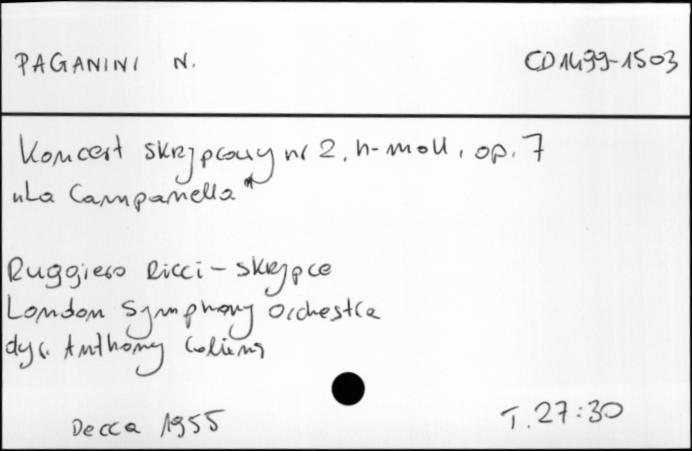 PAGANINI N.
CD1499-1503
Koncert skrzypcowy nr 2, h-moll, op. 7
"La Campanella"
Ruggiero Ricci - skrzypce
London Symphony Orchestra
dyr. Anthony Coliens
Decca 1955
T. 27:30